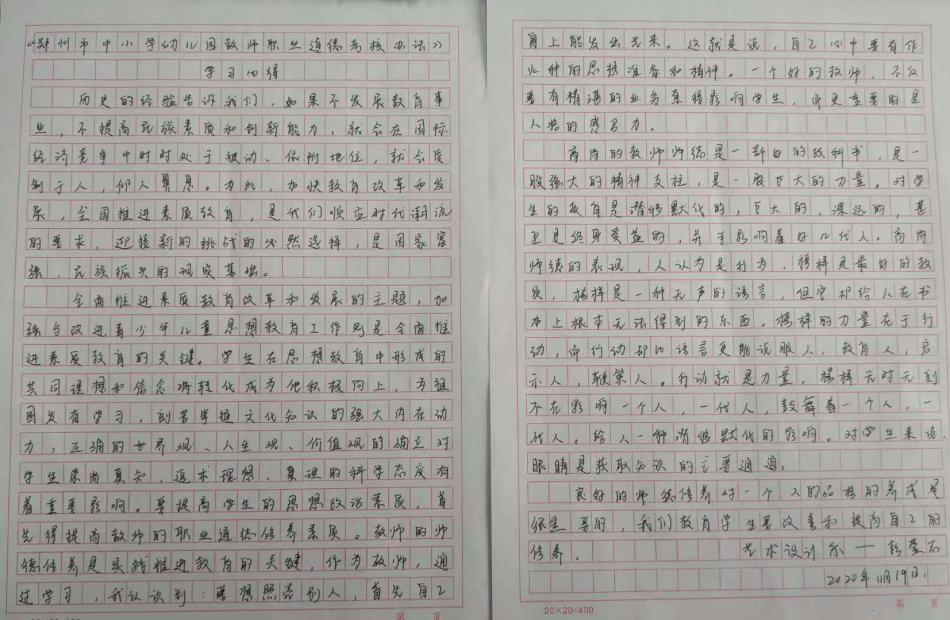 《郑州市中小学幼儿园教师职业道德考核办法》
学习心得
历史的经验告诉我们，如果不发展教育事
业，不提高民族素质和创新能力，就会在国际
经济竞争中时时处于被动、依附地位，就会受
制于人，仰人鼻息。为此，加快教育改革和发
展，全国推进素质教育，是我们顺应时代潮流
的要求，迎接新的挑战的必然选择，是国家富
强，民族振兴的现实基础。
全面推进素质教育改革和发展的主题，加
强与改进青少年儿童思想教育工作则是全面推
进素质教育的关键。学生在思想教育中形成的
共同理想和信念将转化成为他积极向上，为祖
国发奋学习，刻苦掌握文化知识的强大内在动
力，正确的世界观、人生观、价值观的确立对
学生崇尚真知，追求理想、真理的科学态度有
着重要影响。要提高学生的思想政治素质，首
先得提高教师的职业道德修养素质。教师的师
德修养是实践推进教育的关键，作为教师，通
过学习，我认识到：要想照亮别人，首先自己
身上能发出光来。这就是说，自己心中要有作
火种的思想准备和精神。一个好的教师，不仅
要有精湛的业务直接影响学生，而更重要的是
人格的感召力。
高尚的教师师德是一部好的教科书，是一
股强大的精神支柱，是一股巨大的力量。对学
生的教育是潜移默化的，巨大的，深远的，甚
至是终身受益的，并于影响着好几代人。高尚
师德的表现，人认为是行为，榜样是最好的教
员，榜样是一种无声的语言，但它却给人在书
本上根本无法得到的东西。榜样的力量在于行
动，而行动却比语言更能说服人，教育人，启
示人，鞭策人。行动就是力量，榜样无时无刻
不在影响一个人，一代人，鼓舞着一个人，一
代人。给人一种潜移默化的影响。对学生来说，
眼睛是获取知识的主要通道。
良好的师德修养对一个人的品格的养成是
很重要的，我们教育学生要改善和提高自己的
修养。 艺术设计系——
2020年11月19日.
第 页
20×20=400
第 页